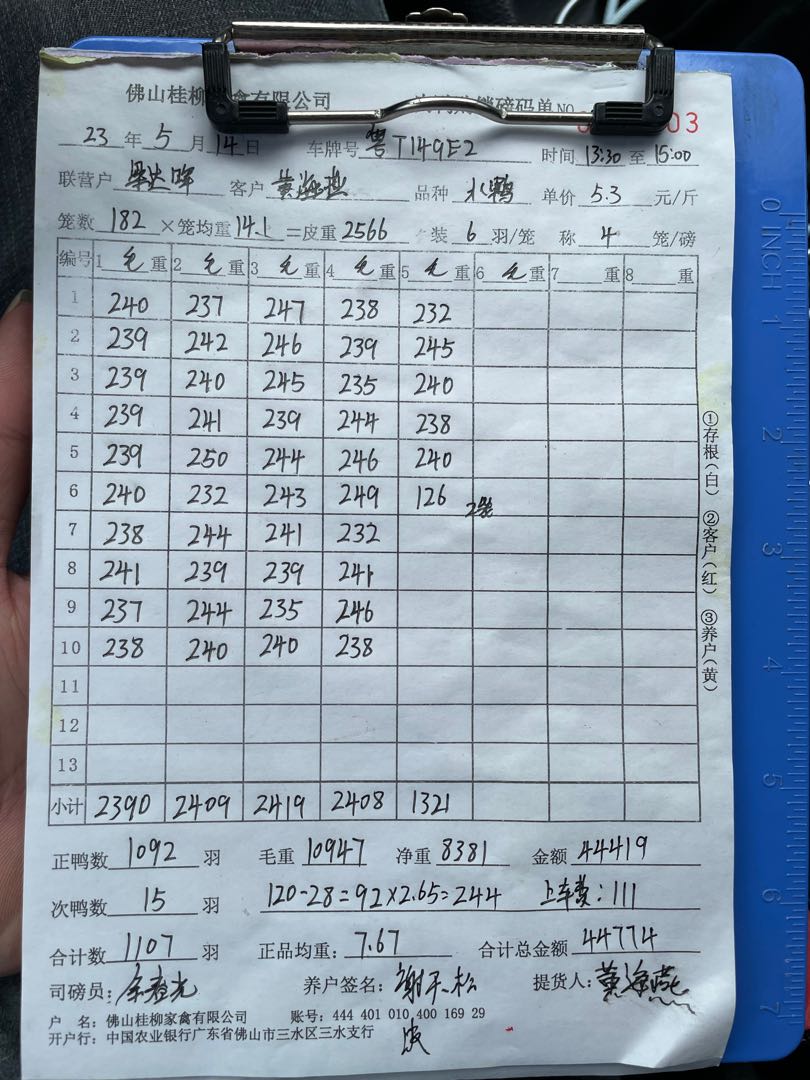 佛山桂柳家禽有限公司 销磅码单 NO 03
23 年 5 月 14 日 车牌号 粤T149E2 时间 13:30 至 15:00
联营户 客户 黄海燕 品种 水鸭 单价 5.3 元/斤
笼数 182 ×笼均重 14.1 =皮重 2566 装 6 羽/笼 称 4 笼/磅
编号 1 毛 重 2 毛 重 3 毛 重 4 毛 重 5 毛 重 6 毛 重 7 重 8 重
1 240 237 247 238 232
2 239 242 246 239 245
3 239 240 245 235 240
4 239 241 239 244 238
5 239 250 244 246 240
6 240 232 243 249 126 2笼
7 238 244 241 232
8 241 239 239 241
9 237 244 235 246
10 238 240 240 238
11
12
13
小计 2390 2409 2419 2408 1321
正鸭数 1092 羽 毛重 10947 净重 8381 金额 44419
次鸭数 15 羽 120-28=92×2.65=244 上车费:111
合计数 1107 羽 正品均重: 7.67 合计总金额 44774
司磅员: 养户签名: 提货人: 黄海燕
户 名: 佛山桂柳家禽有限公司 账号: 444 401 010 400 169 29
开户行: 中国农业银行广东省佛山市三水区三水支行
①存根(白) ②客户(红) ③养户(黄)
0 INCH 1 2 3 4 5 6 7